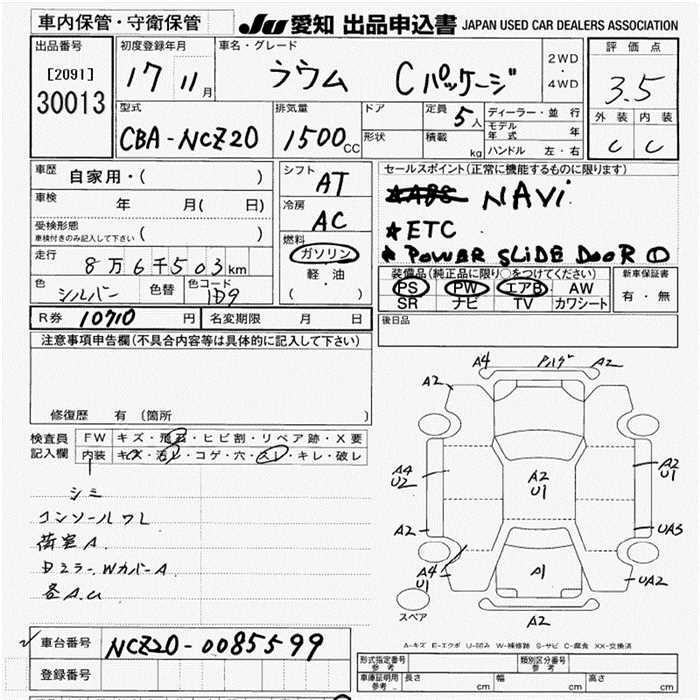 車内保管・守衛保管
JU 愛知 出品申込書 JAPAN USED CAR DEALERS ASSOCIATION
出品番号
[2091]
30013
初度登録年月
17 11月
車名・グレード
ラウム Cパッケージ
2WD
・
4WD
評価点
3.5
外装 内装
C C
型式
CBA-NCZ20
排気量
1500cc
ドア
形状
定員 5人
積載 kg
ディーラー・並行
モデル年式 年
ハンドル 左・右
車歴 自家用・( )
車検 年 月( 日)
受検形態
車検付きのみ記入して下さい ( )
走行 8万6千503km
色 シルバー 色替 色コード 1D9
シフト AT
冷房 AC
燃料
ガソリン
軽油
( ・ )
セールスポイント(正常に機能するものに限ります)
★ABS NAVi
★ETC
★POWER SLIDE DooR ①
装備品(純正品に限り○をつけてください)
PS PW エアB AW
SR ナビ TV カワシート
新車保証書
有・無
R券 10710円
名変期限 月 日
後日品
注意事項申告欄(不具合内容等は具体的に記入して下さい)
修復歴 有(箇所 )
検査員記入欄
FW キズ・飛石・ヒビ割・リペア跡・X要
内装 キズ・汚レ・コゲ・穴・スレ・キレ・破レ
シミ
コンソールワレ
荷室A.
Dミラー.WカバーA.
各A.U
A4 A2
A2
A4
U2
A2
U1
A2
U1
A2
UA3
A4
U1
A1
UA2
A2
スペア
A-キズ E-エクボ U-凹み W-補修跡 S-サビ C-腐食 XX-交換済
車台番号 NCZ20-0085599
登録番号
形式指定番号
参考
類別区分番号
参考
車庫証明用
参考
長さ cm 幅 cm 高さ cm